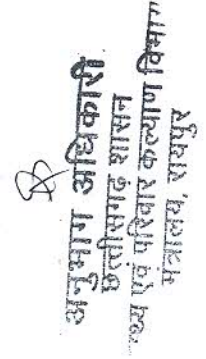 अनुभाग अधिकारी
छत्तीसगढ़ शासन
एवं परिवार कल्याण विभाग
मंत्रालय, रायपुर